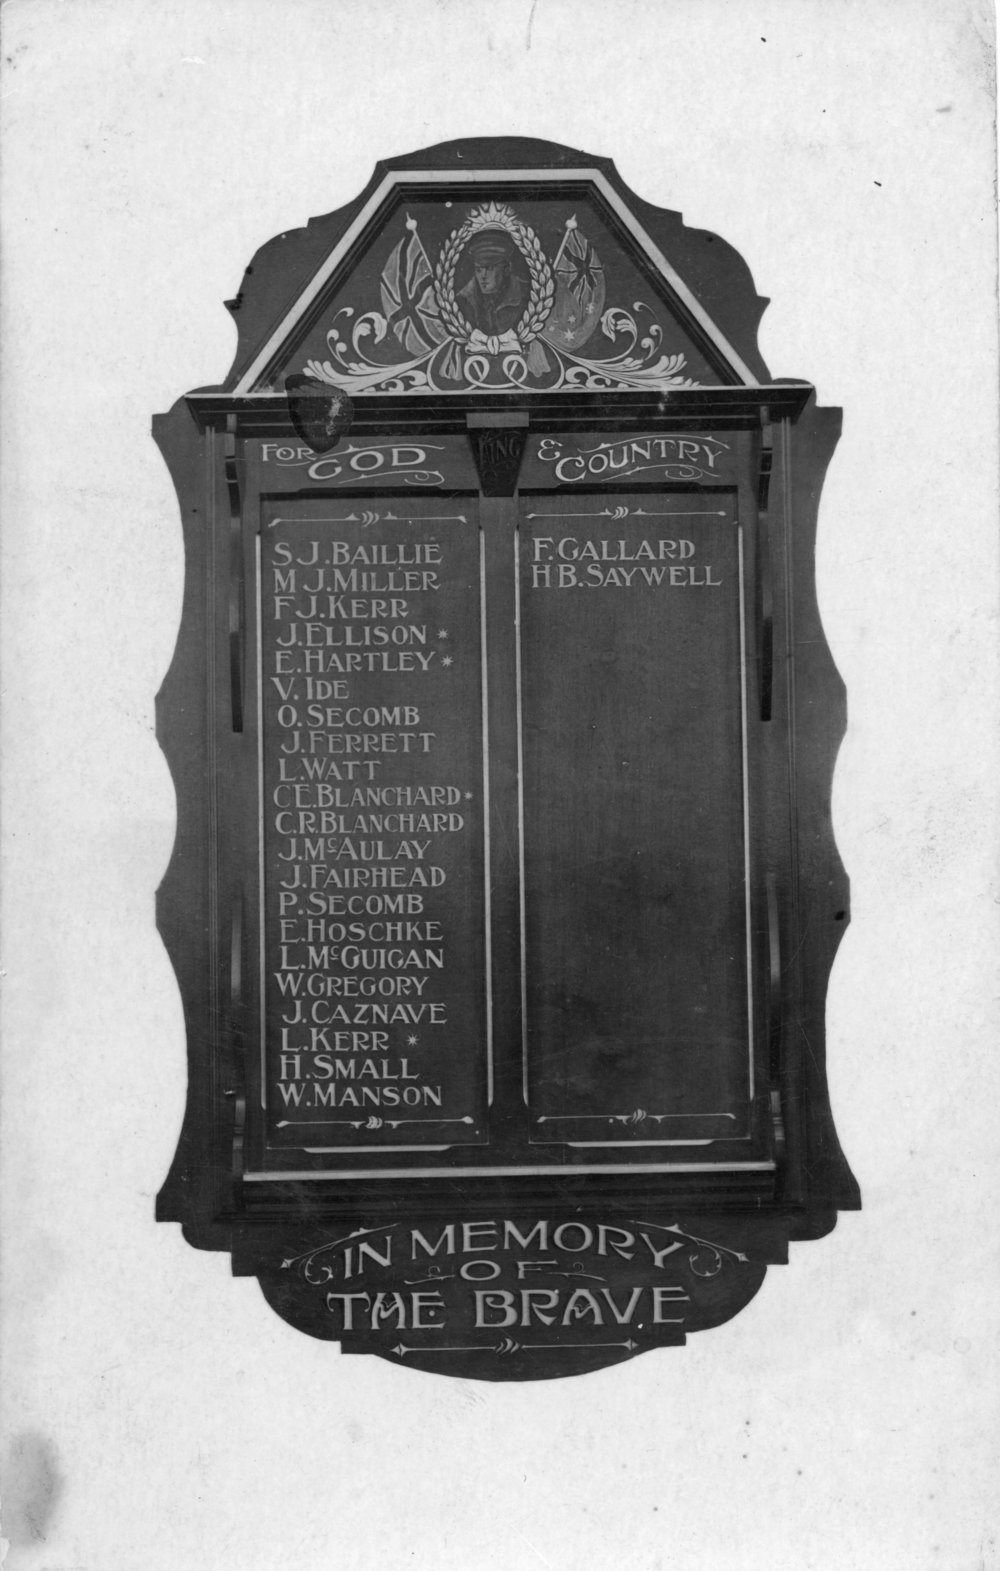 FOR GOD KING & COUNTRY
S J. BAILLIE
M J. MILLER
F J. KERR
J. ELLISON *
E. HARTLEY *
V. IDE
O. SECOMB
J. FERRETT
L. WATT
C E. BLANCHARD *
C. R. BLANCHARD
J. McAULAY
J. FAIRHEAD
P. SECOMB
E. HOSCHKE
L. McGUIGAN
W. GREGORY
J. CAZNAVE
L. KERR *
H. SMALL
W. MANSON
F. GALLARD
H B. SAYWELL
IN MEMORY
OF
THE BRAVE